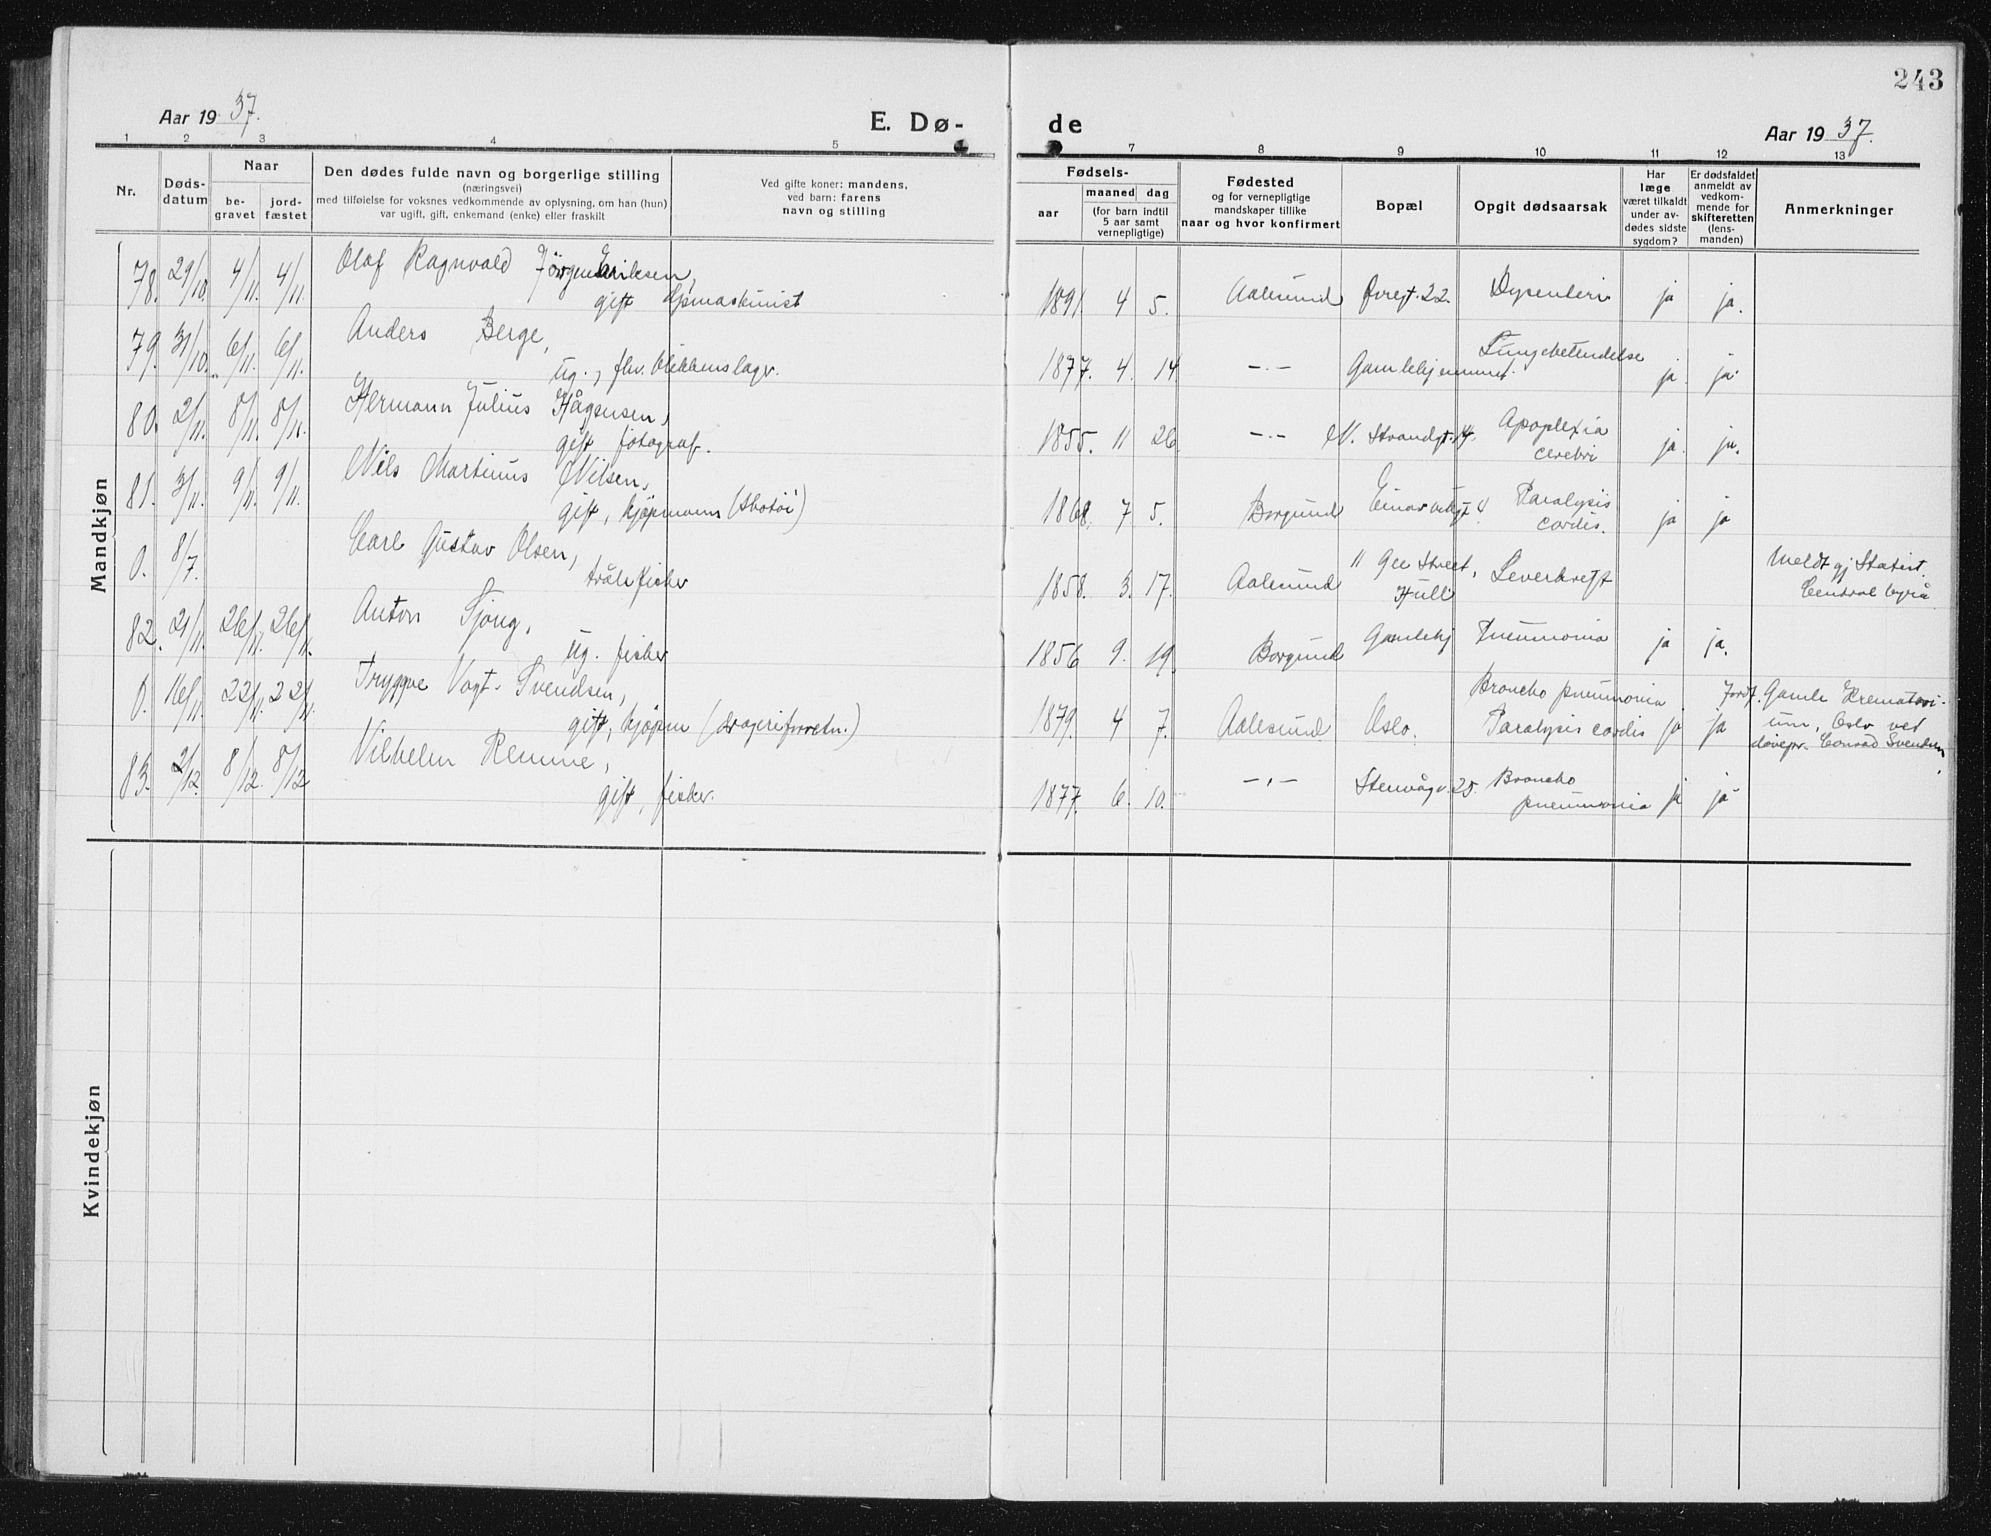 243
Aar 1937.
E. Dø-
de
Aar 1937.
1 2 3 4 5
7 8 9 10 11 12 13
Nr.
Døds-
datum
Naar
be-
gravet
jord-
fæstet
Den dødes fulde navn og borgerlige stilling
(næringsvei)
med tilføielse for voksnes vedkommende av oplysning, om han (hun)
var ugift, gift, enkemand (enke) eller fraskilt
Ved gifte koner: mandens,
ved barn: farens
navn og stilling
Fødsels-
aar
maaned dag
(for barn indtil
5 aar samt
vernepligtige)
Fødested
og for vernepligtige
mandskaper tillike
naar og hvor konfirmert
Bopæl
Opgit dødsaarsak
Har
læge
været tilkaldt
under av-
dødes sidste
sygdom?
Er dødsfaldet
anmeldt av
vedkom-
mende for
skifteretten
(lens-
manden)
Anmerkninger
Mandkjøn
78. 29/10. 4/11. 4/11. Olaf Ragnvald Jörgen Eriksen,
gift 1891. 4 5. Aalesund 22. Dysenteri ja ja.
79. 31/10. 6/11. 6/11. Anders Berge,
ug., fhv. blikkenslager. 1877. 4. 14 -"- Gamlehjemmet. Lungebetendelse ja. ja.
80. 2/11. 8/11. 8/11. Hermann Julius Hågensen,
gift fotograf. 1855. 11 26. -"- N. Strandgt. 14. Apoplexia
cerebri ja. ja.
81. 3/11. 9/11. 9/11. Nils Martinus Nilsen,
gift, kjøpmann (skotöi) 1868. 7 5. Borgund 4 Paralysis
cordis. ja ja
0. 8/7. Carl Gustav Olsen,
trålfisker 1858. 3. 17. Aalesund 11 Gee Street,
Hull Leverkreft Meldt gj. Statist.
Central byrå
82. 21/11. 26/11. 26/11. Anton Sjong,
ug. fisker 1856 9. 19. Borgund Gamlehj Pneumonia ja ja.
0. 16/11. 22/11. 22/11. Tryggve Vogt-Svendsen,
gift, kjøpm (drageriforretn.) 1879. 4 7. Aalesund Oslo. Broncho pneumonia
Paralysis cordis ja ja Jordf. Gamle Krematori-
um, Oslo ved
døvepr. Conrad Svendsen.
83. 2/12. 8/12. 8/12 Vilhelm Remme,
gift, fisker. 1877. 6. 10. -"- Stenvågv. 25. Broncho
pneumonia ja ja
Kvindekjøn